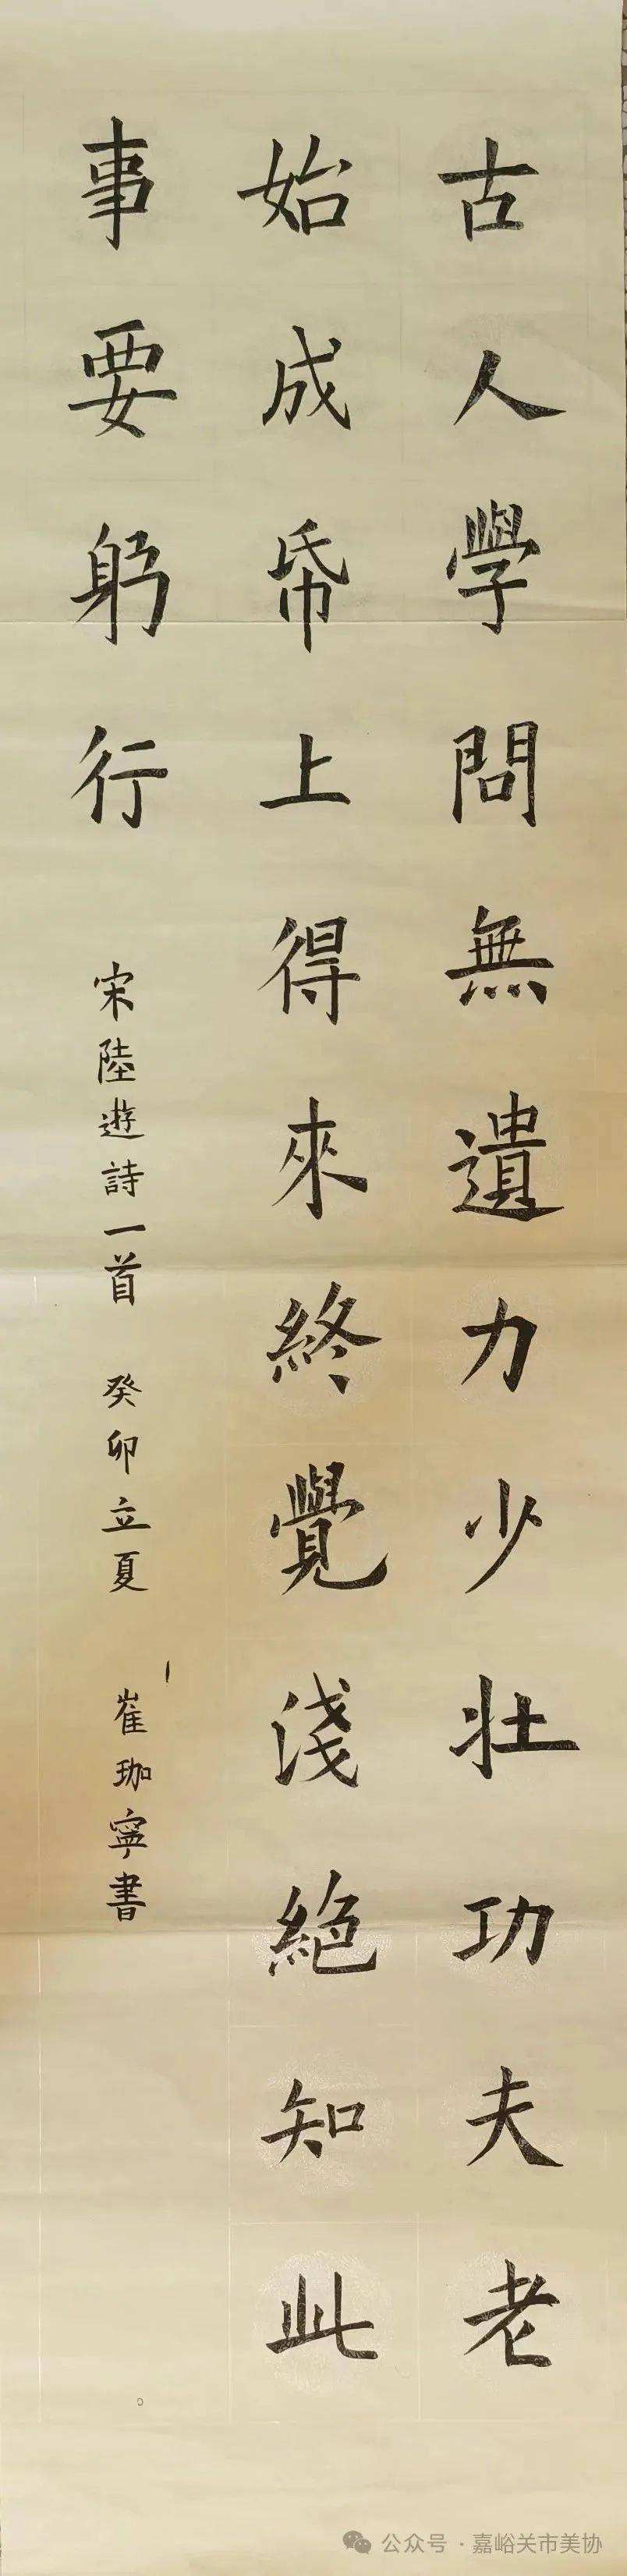 古人學問無遺力少壯功夫老
始成帋上得來終覺淺絕知此
事要躬行
宋陸遊詩一首 癸卯立夏 崔珈寧書
公众号 · 嘉峪关市美协